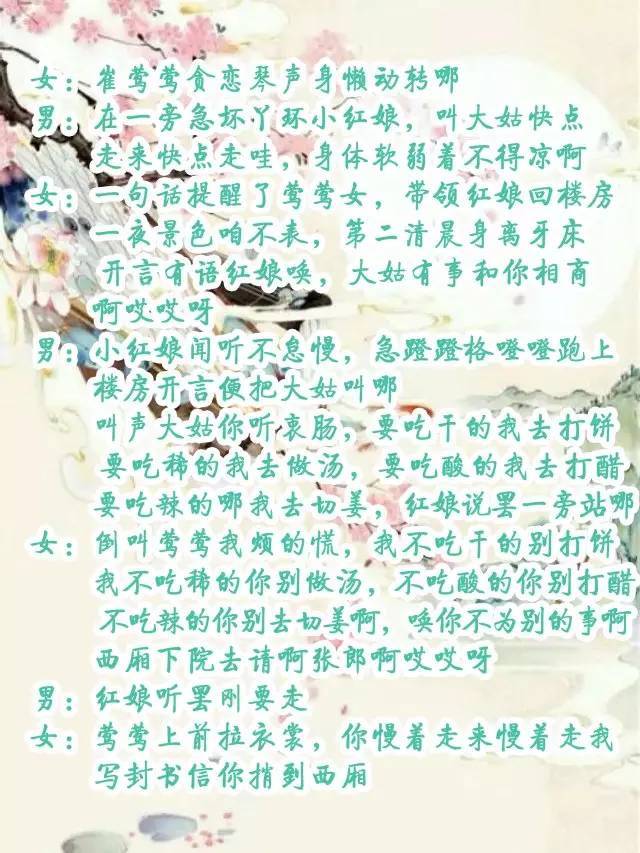 女：崔莺莺贪恋琴声身懒动转哪
男：在一旁急坏丫环小红娘，叫大姑快点
走来快点走哇，身体软弱着不得凉啊
女：一句话提醒了莺莺女，带领红娘回楼房
一夜景色咱不表，第二清晨身离牙床
开言有语红娘唤，大姑有事和你相商
啊哎哎呀
男：小红娘闻听不怠慢，急蹬蹬格噔噔跑上
楼房开言便把大姑叫哪
叫声大姑你听衷肠，要吃干的我去打饼
要吃稀的我去做汤，要吃酸的我去打醋
要吃辣的哪我去切姜，红娘说罢一旁站哪
女：倒叫莺莺我烦的慌，我不吃干的别打饼
我不吃稀的你别做汤，不吃酸的你别打醋
不吃辣的你别去切姜啊，唤你不为别的事啊
西厢下院去请啊张郎啊哎哎呀
男：红娘听罢刚要走
女：莺莺上前拉衣裳，你慢着走来慢着走我
写封书信你捎到西厢